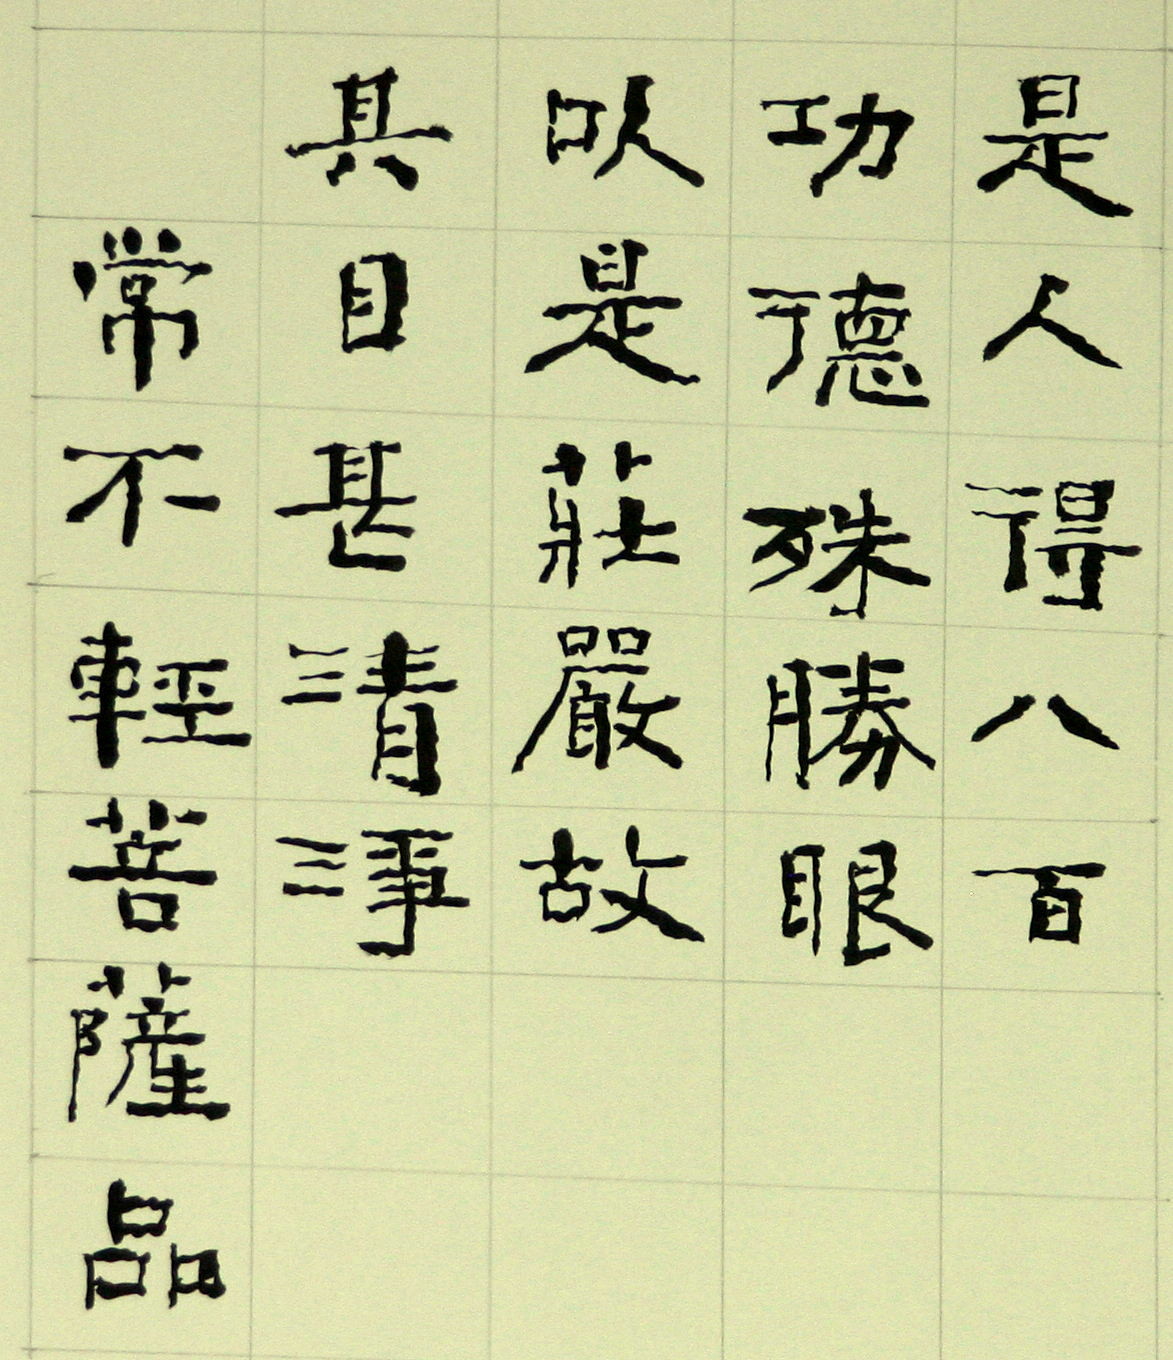 是人得八百
功德殊勝眼
以是莊嚴故
其目甚清淨
常不輕菩薩品